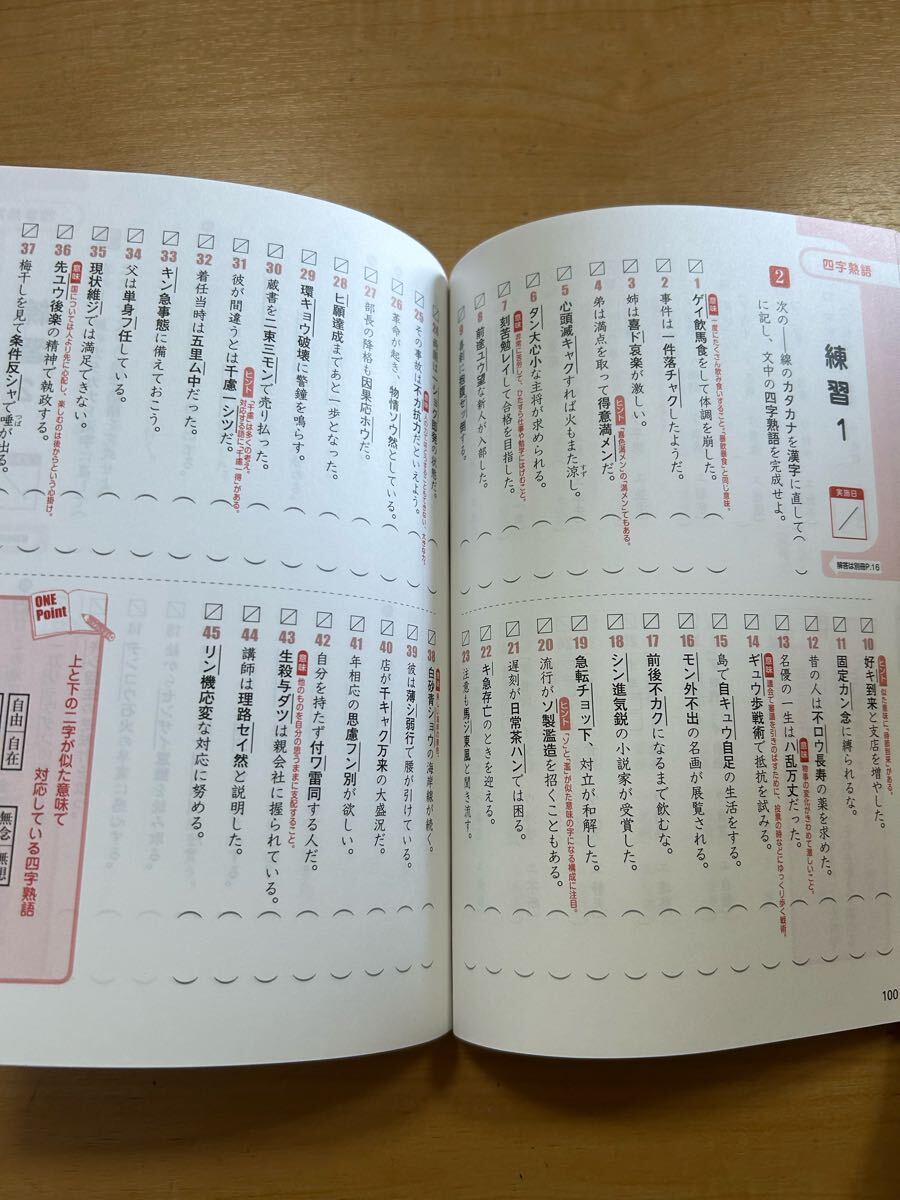 四字熟語
練習1
実施日
解答は別冊P.16
2 次の――線のカタカナを漢字に直して(　)
に記し、文中の四字熟語を完成せよ。
1 ゲイ飲馬食をして体調を崩した。
意味 一度にたくさん飲み食いすること。「暴飲暴食」と同じ意味。
2 事件は一件落チャクしたようだ。
3 姉は喜ド哀楽が激しい。
4 弟は満点を取って得意満メンだ。
ヒント 「喜色満メン」の「満メン」でもある。
5 心頭滅キャクすれば火もまた涼し。
す
6 タン大心小な主将が求められる。
7 刻苦勉レイして合格を目指した。
意味 非常に苦労して、ひたすら仕事や勉学にはげむこと。
8 前途ユウ望な新人が入部した。
9 喜劇に抱腹ゼッ倒する。
10 好キ到来と支店を増やした。
ヒント 似た意味に、「時節到来」がある。
11 固定カン念に縛られるな。
12 昔の人は不ロウ長寿の薬を求めた。
13 名優の一生はハ乱万丈だった。
意味 物事の変化がきわめて激しいこと。
14 ギュウ歩戦術で抵抗を試みる。
意味 議会で審議を引きのばすために、投票の時などにゆっくり歩く戦術。
15 島で自キュウ自足の生活をする。
16 モン外不出の名画が展覧される。
17 前後不カクになるまで飲むな。
18 シン進気鋭の小説家が受賞した。
19 急転チョッ下、対立が和解した。
20 流行がソ製濫造を招くこともある。
ヒント 「ソ」と「濫」が似た意味の字になる構成に注目。
21 遅刻が日常茶ハンでは困る。
22 キ急存亡のときを迎える。
23 注意も馬ジ東風と聞き流す。
100
25 その事故は不カ抗力だといえよう。
26 革命が起き、物情ソウ然としている。
27 部長の降格も因果応ホウだ。
28 ヒ願達成まであと一歩となった。
29 環キョウ破壊に警鐘を鳴らす。
30 蔵書を二束三モンで売り払った。
31 彼が間違うとは千慮一シツだ。
ヒント 「千慮」は多くの考え。対応する語に「千慮一得」がある。
32 着任当時は五里ム中だった。
33 キン急事態に備えておこう。
34 父は単身フ任している。
35 現状維ジでは満足できない。
36 先ユウ後楽の精神で執政する。
意味 国については人より先に心配し、楽しむのは後からという心掛け。
37 梅干しを見て条件反シャで唾が出る。
つば
38 白砂青ショウの海岸線が続く。
39 彼は薄シ弱行で腰が引けている。
40 店が千キャク万来の大盛況だ。
41 年相応の思慮フン別が欲しい。
42 自分を持たず付ワ雷同する人だ。
43 生殺与ダツは親会社に握られている。
意味 他のものを自分の思うままに支配すること。
44 講師は理路セイ然と説明した。
45 リン機応変な対応に努める。
ONE Point
上と下の二字が似た意味で
対応している四字熟語
自由 自在
無念 無想